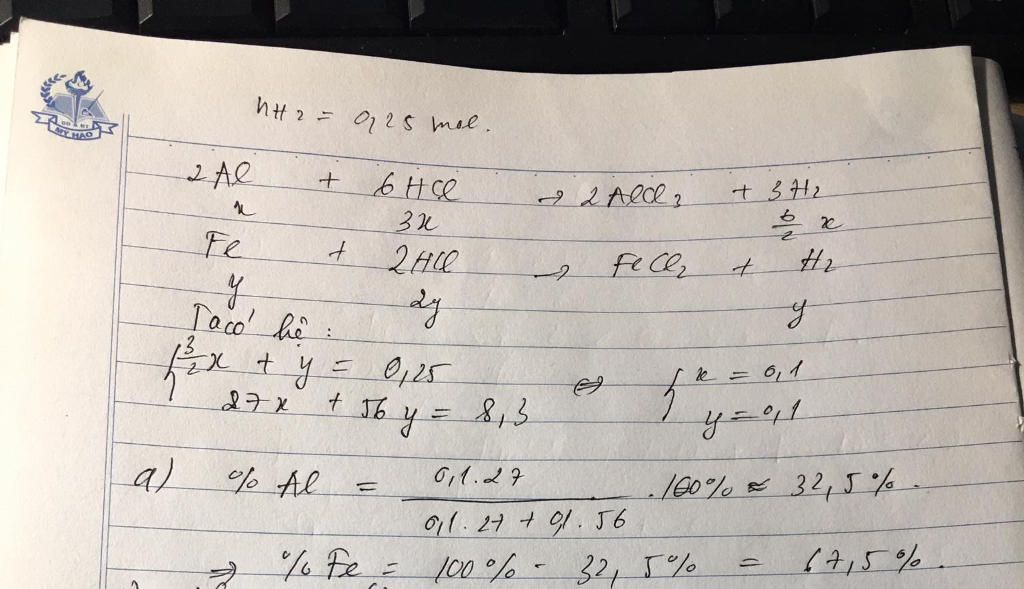 MỸ HÀO
nH2 = 0,25 mol.
2Al + 6HCl → 2AlCl3 + 3H2
x 3x 3/2 x
Fe + 2HCl → FeCl2 + H2
y 2y y
Ta có hệ :
{ 3/2 x + y = 0,25 ⇔ { x = 0,1
27x + 56y = 8,3 y = 0,1
a) % Al = 0,1.27 / 0,1.27 + 0,1.56 .100% ≈ 32,5%.
⇒ % Fe = 100% - 32,5% = 67,5%.